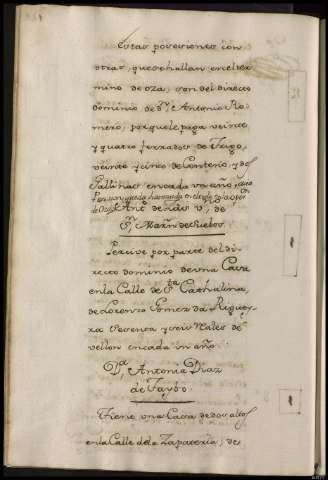 Estas posesiones con
otras, que se hallan en el ter
mino de oza, son del directo
dominio de Dn. Antonio Ro
mero, porque le paga veinte
y quatro ferrados de Trigo,
veinte y cinco de Centeno, y dos
Gallinas en cada un año,
Ant.
Sn. Martn. de
Percive por parte del di
recto dominio de una Casa
en la Calle de Sta. Cathalina,
de Lorenzo Gomez da Riguey
ra sesenta y seis Reales de
vellon en cada un año.
Da. Antonia Diaz
de Taybo.
Tiene una Casa de dos altos
en la Calle de la Zapateria, de